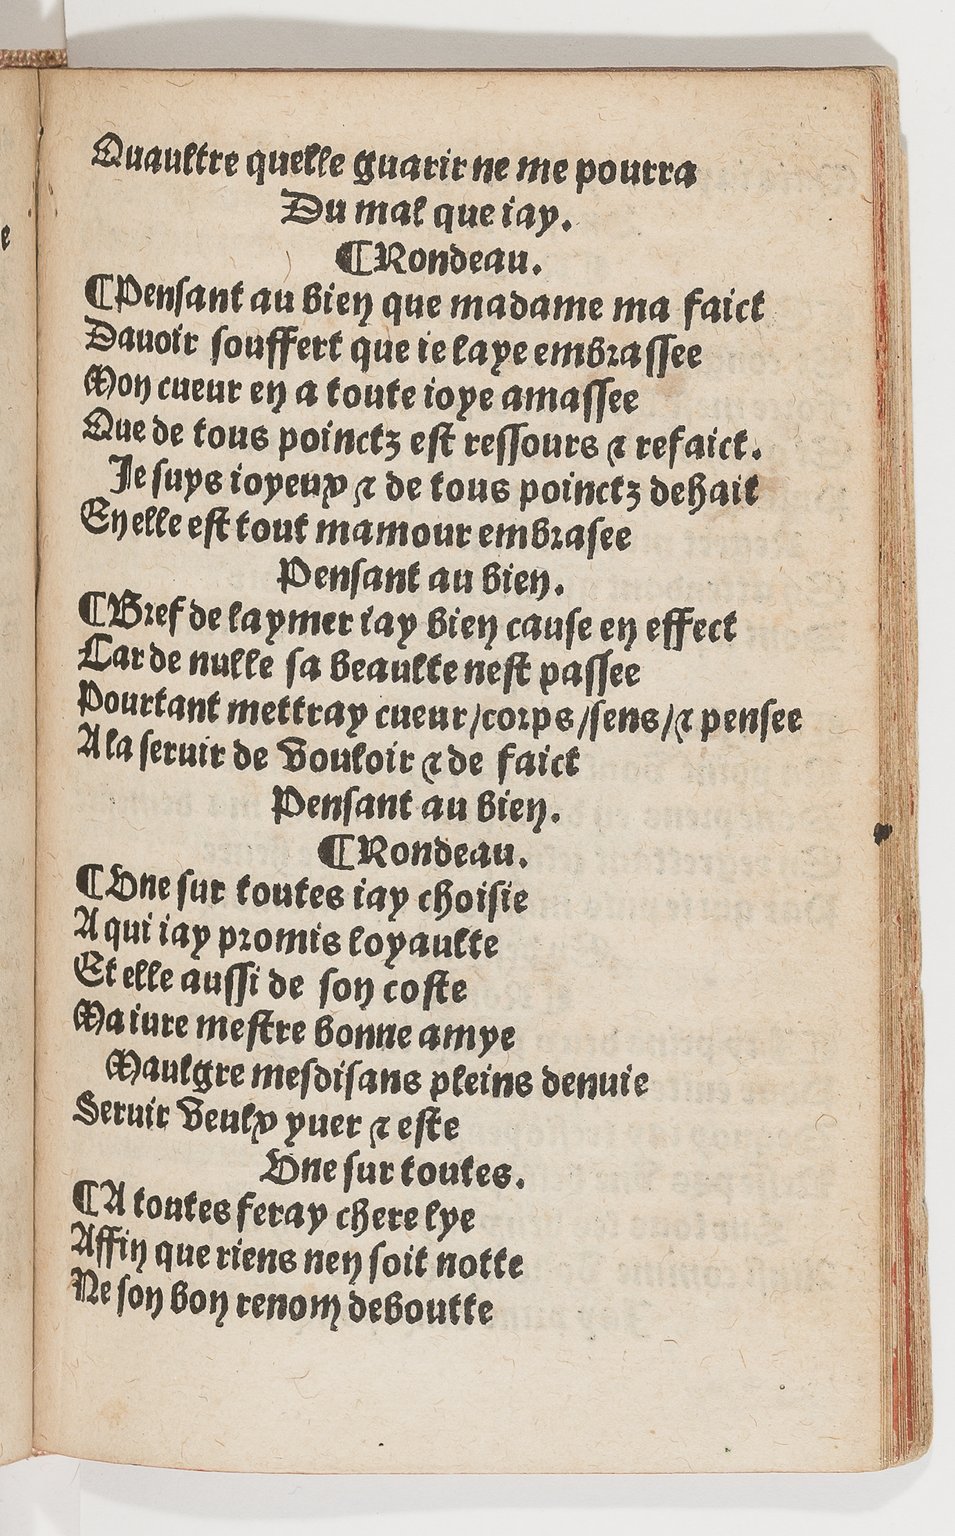 Quaultre quelle guarir ne me pourra
Du mal que iay.
¶Rondeau.
¶Pensant au bien que madame ma faict
Dauoir souffert que ie laye embrassee
Mon cueur en a toute ioye amassee
Que de tous poinctz est ressours ⁊ refaict.
Je suys ioyeux ⁊ de tous poinctz dehait
En elle est tout mamour embrasee
Pensant au bien.
¶Bref de laymer iay bien cause en effect
Car de nulle sa beaulte nest passee
Pourtant mettray cueur/corps/sens/⁊ pensee
A la seruir de vouloir ⁊ de faict
Pensant au bien.
¶Rondeau.
¶Une sur toutes iay choisie
A qui iay promis loyaulte
Et elle aussi de son coste
Ma iure mestre bonne amye
Maulgre mesdisans pleins denuie
Seruir veulx yuer ⁊ este
Une sur toutes.
¶A toutes feray chere lye
Affin que riens nen soit notte
Ne son bon renom deboutte
e